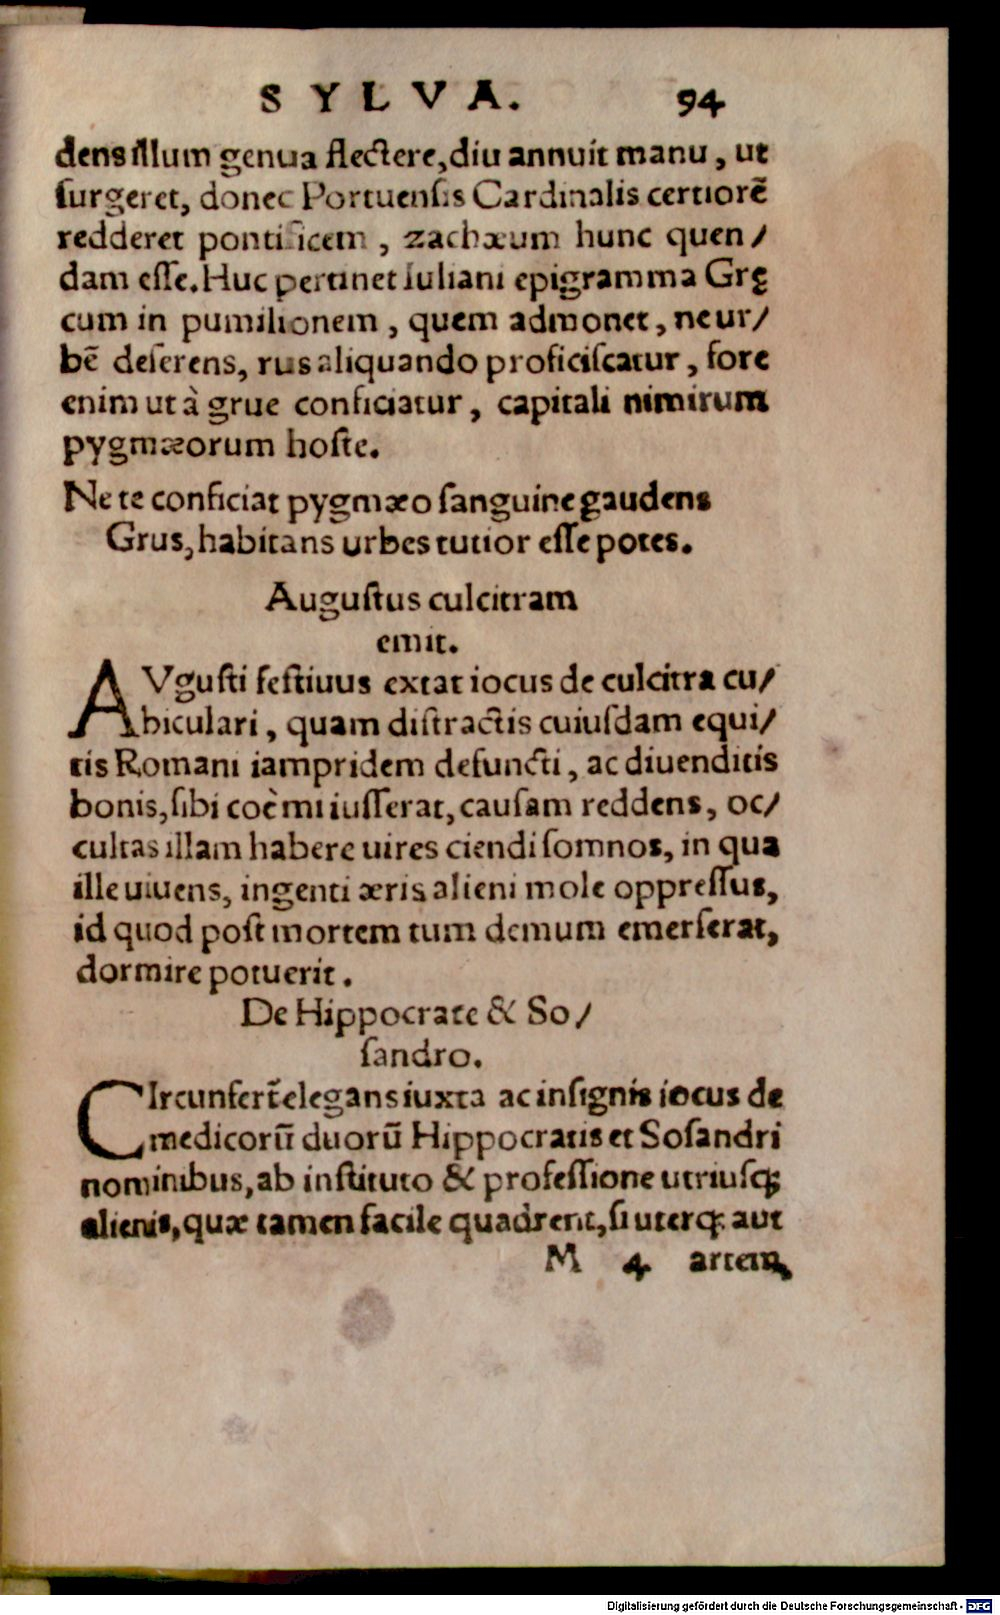 SYLVA. 94
dens illum genua flectere, diu annuit manu, ut
surgeret, donec Portuensis Cardinalis certiorē
redderet pontificem, zachæum hunc quen/
dam esse. Huc pertinet Iuliani epigramma Grę
cum in pumilionem, quem admonet, ne ur/
bē deserens, rus aliquando proficiscatur, fore
enim ut à grue conficiatur, capitali nimirum
pygmæorum hoste.
Ne te conficiat pygmæo sanguine gaudens
Grus, habitans urbes tutior esse potes.
Augustus culcitram
emit.
AVgusti festiuus extat iocus de culcitra cu/
biculari, quam distractis cuiusdam equi/
tis Romani iampridem defuncti, ac diuenditis
bonis, sibi coèmi iusserat, causam reddens, oc/
cultas illam habere uires ciendi somnos, in qua
ille uiuens, ingenti æris alieni mole oppressus,
id quod post mortem tum demum emerserat,
dormire potuerit.
De Hippocrate & So/
sandro.
CIrcunfert̃ elegans iuxta ac insignis iocus de
medicorū duorū Hippocratis et Sosandri
nominibus, ab instituto & professione utriusq;
alienis, quæ tamen facile quadrent, si uterq; aut
M 4 artem,
Digitalisierung gefördert durch die Deutsche Forschungsgemeinschaft - DFG